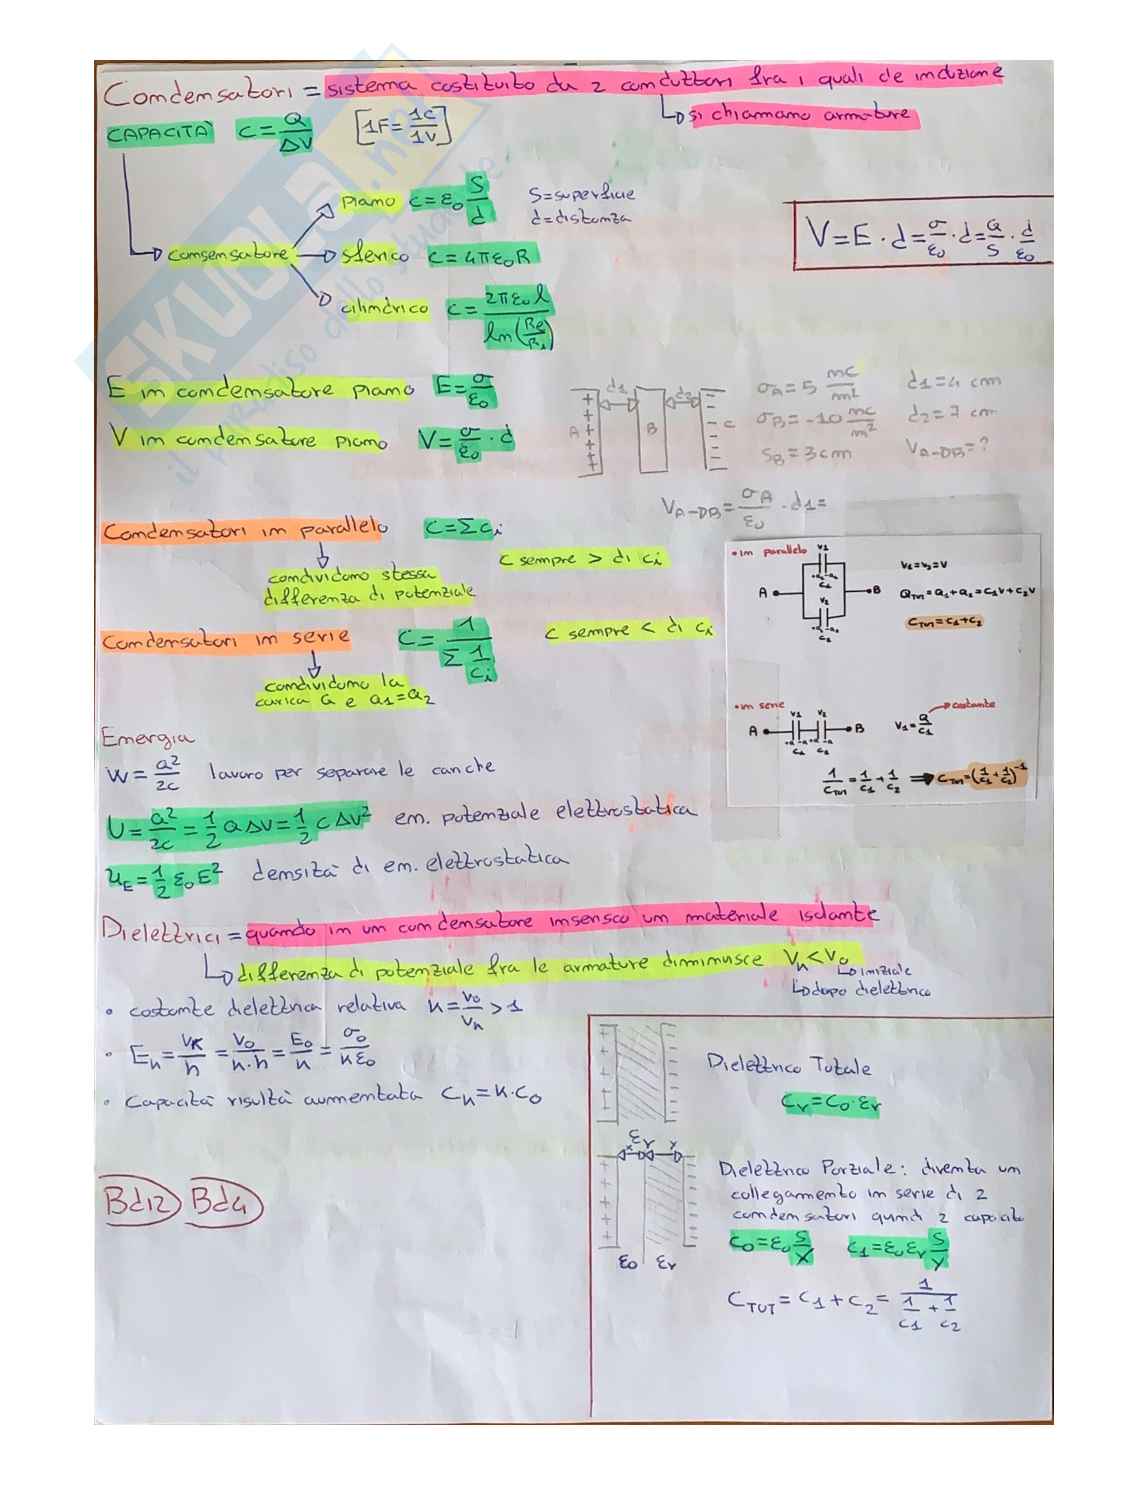 Condensatori = sistema costituito da 2 conduttori fra i quali c'è induzione
↳ si chiamano armature
CAPACITÀ C = Q/ΔV [1F = 1C/1V]
condensatore
piano C = ε₀ S/d
S = superficie
d = distanza
sferico C = 4πε₀R
cilindrico C = 2πε₀l / ln(Re/Ri)
V = E · d = σ/ε₀ · d = Q/S · d/ε₀
E in condensatore piano E = σ/ε₀
V in condensatore piano V = σ/ε₀ · d
d1 d2
A B C
σA = 5 mc/m² d1 = 4 cm
σB = -10 mc/m² d2 = 7 cm
SB = 3 cm VA→B = ?
VA→B = σA/ε₀ · d1 =
Condensatori in parallelo C = Σ Ci
C sempre > di Ci
condividono stessa
differenza di potenziale
Condensatori in serie C = 1 / Σ 1/Ci
C sempre < di Ci
condividono la
carica Q e Q1 = Q2
• in parallelo
V1
C1
A B
V2
C2
V1 = V2 = V
QTOT = Q1 + Q2 = C1V + C2V
CTOT = C1 + C2
• in serie
V1 V2
A B
C1 C2
V1 = Q/C1 → costante
1/CTOT = 1/C1 + 1/C2 ⇒ CTOT = (1/C1 + 1/C2)⁻¹
Energia
W = Q²/2C lavoro per separare le cariche
U = Q²/2C = 1/2 Q ΔV = 1/2 C ΔV² en. potenziale elettrostatica
uE = 1/2 ε₀ E² densità di en. elettrostatica
Dielettrici = quando in un condensatore inserisco un materiale isolante
↳ differenza di potenziale fra le armature diminuisce Vk < V₀
↳ iniziale
↳ dopo dielettrico
• costante dielettrica relativa k = V₀/Vk > 1
• Ek = Vk/h = V₀/k·h = E₀/k = σ₀/kε₀
• capacità risulta aumentata Ck = k · C₀
Dielettrico Totale
Cr = C₀ · εr
εr
x y
ε₀ εr
Dielettrico Parziale: diventa un
collegamento in serie di 2
condensatori quindi 2 capacità
C₀ = ε₀ S/x C1 = ε₀ εr S/y
CTOT = C1 + C2 = 1 / (1/C1 + 1/C2)
Bd12 Bd4
SKUOLA.net
il paradiso dello studente